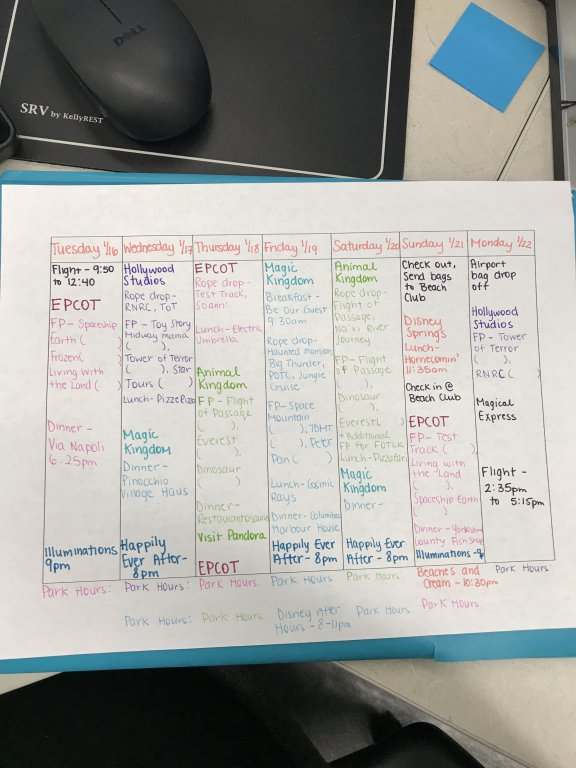 DELL
SRV by KellyREST
Tuesday 1/16
Flight - 9:50
to 12:40
EPCOT
FP - Spaceship
Earth (
Frozen(    )
Living with
the Land (    )
Dinner -
Via Napoli
6:25pm
Illuminations
9pm
Park Hours:
Wednesday 1/17
Hollywood
Studios
Rope drop-
RNRC, ToT
FP - Toy Story
Midway mania
(    ),
Tower of Terror
(    ), Star
Tours (    )
Lunch- PizzeRizzo
Magic
Kingdom
Dinner -
Pinocchio
Village Haus
Happily
Ever After-
8pm
Park Hours:
Park Hours:
Thursday 1/18
EPCOT
Rope drop-
Test Track,
Soarin'
Lunch-Electric
Umbrella
Animal
Kingdom
FP - Flight
of Passage
(    ),
Everest
(    ),
Dinosaur
(    )
Dinner-
Restaurantosaurus
Visit Pandora
EPCOT
Park Hours:
Park Hours:
Friday 1/19
Magic
Kingdom
Breakfast -
Be Our Guest
9:30am
Rope drop-
Haunted Mansion,
Big Thunder,
POTC, Jungle
Cruise
FP - Space
Mountain
(    ), 7DMT
(    ), Peter
Pan (    )
Lunch- Cosmic
Rays
Dinner- Columbia
Harbour House
Happily Ever
After - 8pm
Park Hours:
Disney After
Hours - 8-11pm
Saturday 1/20
Animal
Kingdom
Rope drop-
Flight of
Passage,
Na'vi River
Journey
FP- Flight
of Passage
(    ),
Dinosaur
(    ),
Everest(    )
+ Additional
FP for FOTLK
Lunch-Pizzafari
Magic
Kingdom
Dinner-
Happily Ever
After - 8pm
Park Hours:
Park Hours:
Sunday 1/21
Check out,
Send bags
to Beach
Club
Disney
Springs
Lunch-
Homecomin'
11:35am
Check in @
Beach Club
EPCOT
FP - Test
Track (    )
Living with
the Land
(    ),
Spaceship Earth
(    )
Dinner - Yorkshire
County Fish Shop
Illuminations -9
Beaches and
Cream - 10:30pm
Park Hours:
Monday 1/22
Airport
bag drop
off
Hollywood
Studios
FP - Tower
of Terror
(    ),
RNRC (    )
Magical
Express
Flight -
2:35pm
to 5:15pm
Park Hours: